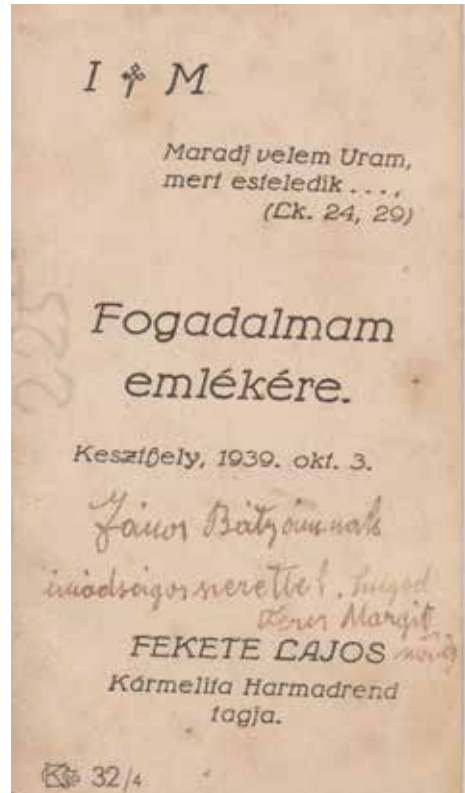 I M
Maradj velem Uram,
mert esteledik . . . ,
(Lk. 24, 29)
225
Fogadalmam
emlékére.
Keszthely, 1939. okt. 3.
János Bátyámnak
imádságos szeretettel.
Margit
FEKETE LAJOS
Kármelita Harmadrend
tagja.
32/4